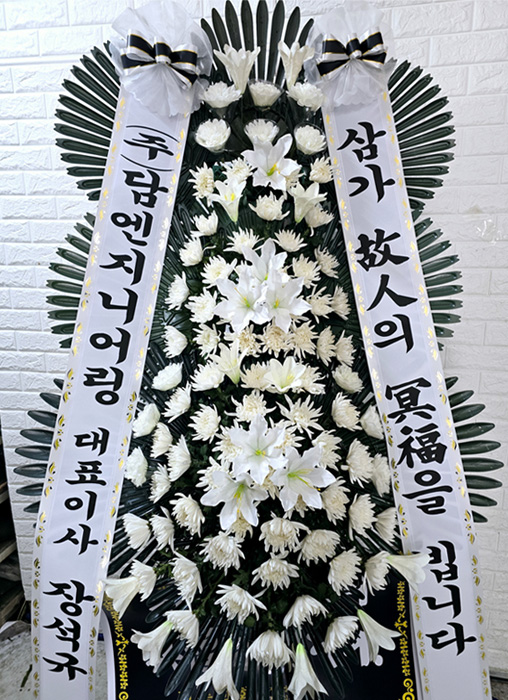 (주)담엔지니어링 대표이사 장석규
삼가 故人의 冥福을 빕니다